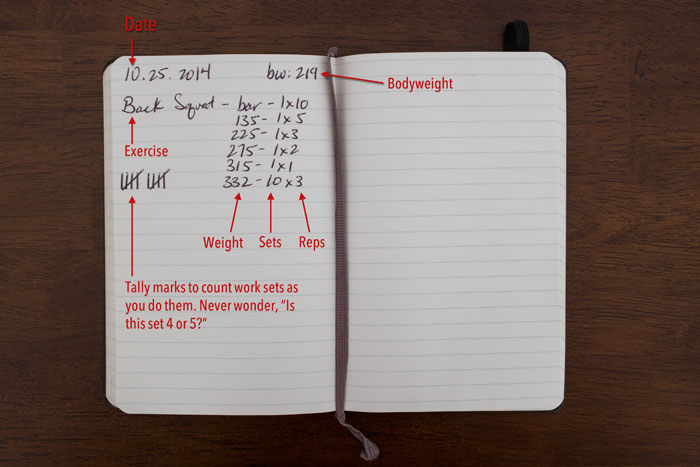 Date
10.25.2014 bw: 219
Bodyweight
Back Squat - bar - 1x10
135 - 1x5
225 - 1x3
Exercise
275 - 1x2
315 - 1x1
332 - 10x3
Weight Sets Reps
Tally marks to count work sets as
you do them. Never wonder, “Is
this set 4 or 5?“